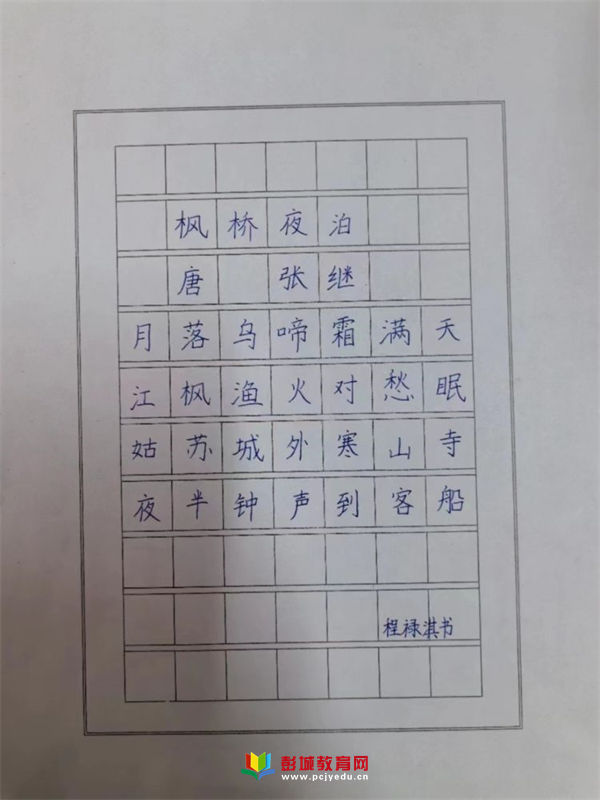 枫桥夜泊
唐 张继
月落乌啼霜满天
江枫渔火对愁眠
姑苏城外寒山寺
夜半钟声到客船
程禄淇书
彭城教育网
www.pcjyedu.cn